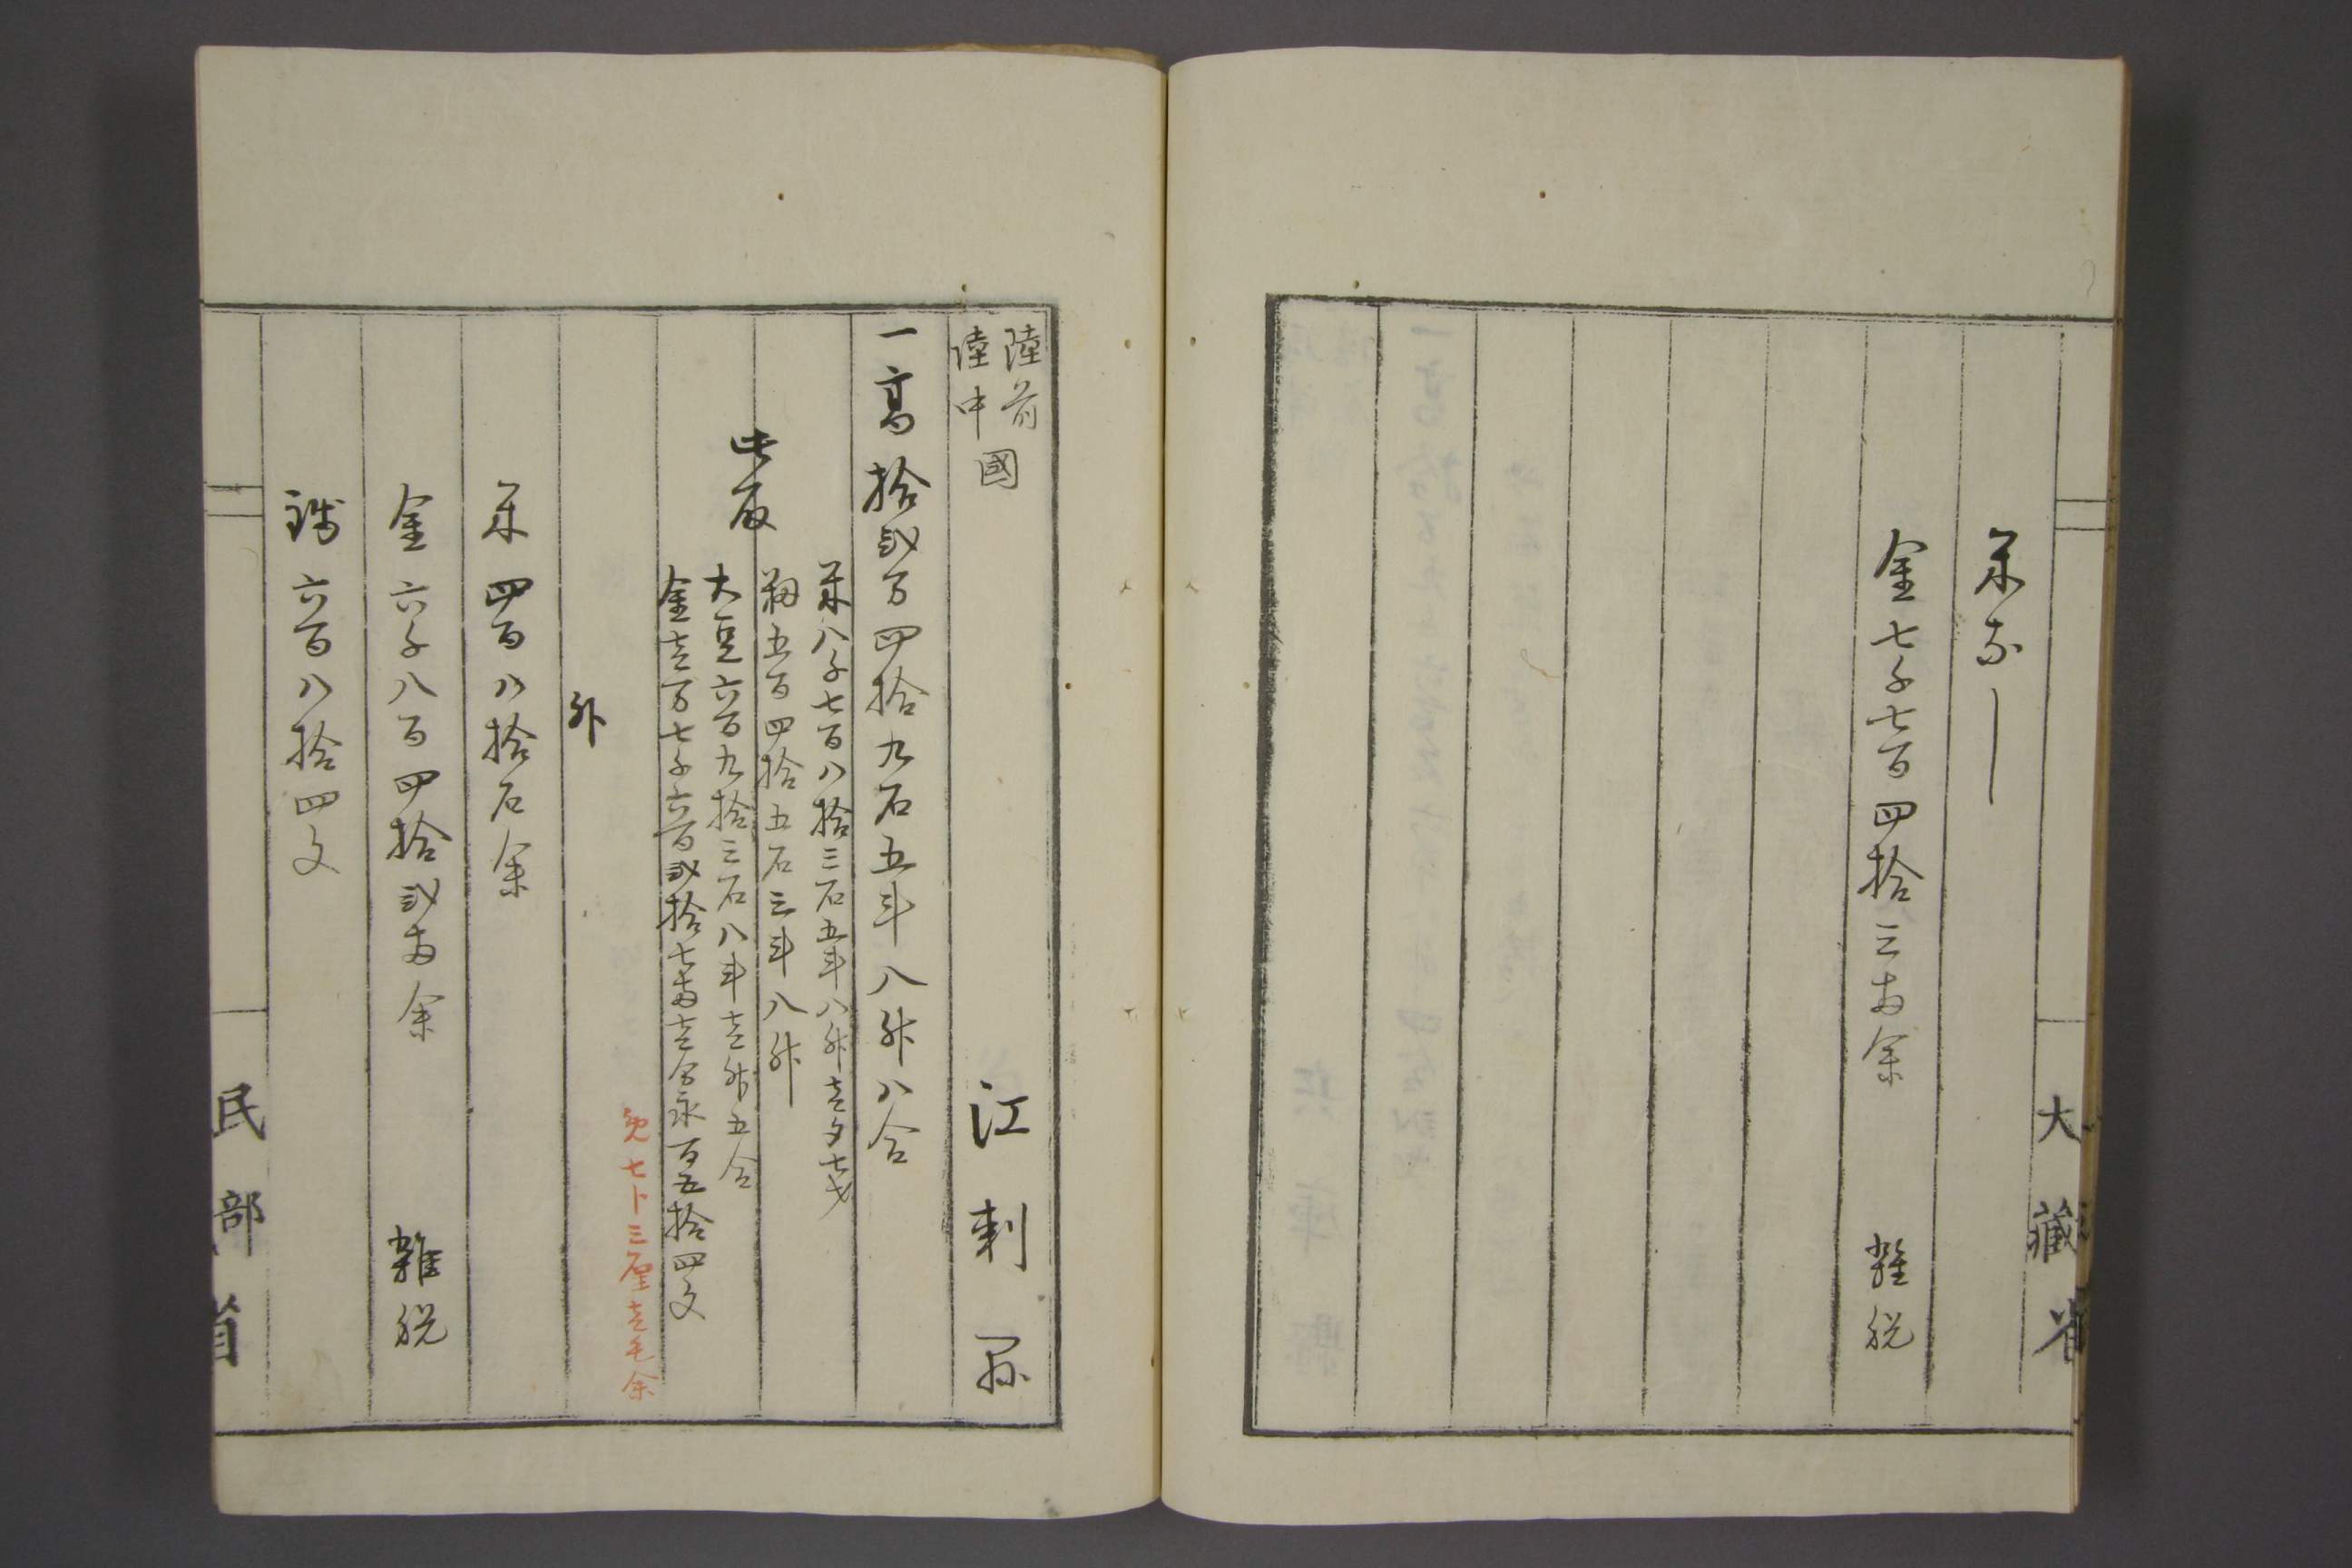 米なし
金七千七百四拾三両余 雑税
大藏省
陸前
陸中
國 江刺縣
一高拾弐万四拾九石五斗八升八合
此取
米八千七百八拾三石五斗八升壱夕七才
籾五百四拾五石三斗八升
大豆六百九拾三石八斗壱升五合
金壱万七千六百弐拾七両壱分永百五拾四文
免七卜三厘壱毛余
外
米四百八拾石余
金六千八百四拾弐両余 雑税
銭六百八拾四文
民部省